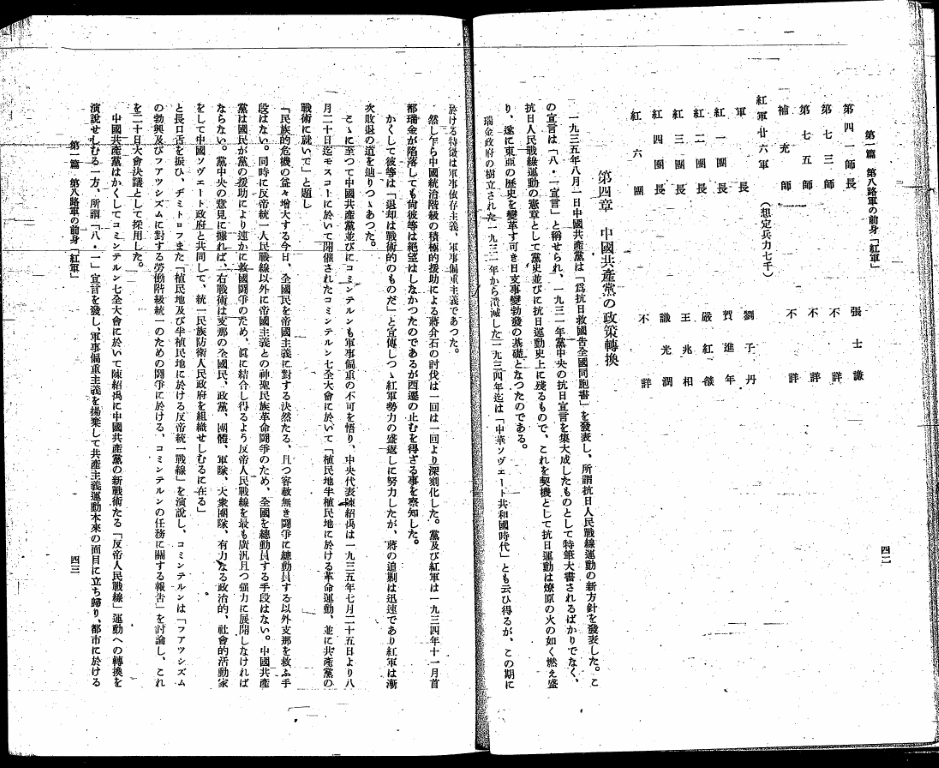 第一篇　第八路軍の前身「紅軍」
四二
第四一師長　張士謙
第七三師　不詳
第七五師　不詳
補充師　不詳
紅軍廿六軍（想定兵力七千）
軍長　劉子丹
紅一團長　賀進年
紅二團長　嚴紅
紅三團長　王兆相
紅四團長　光潤
紅六團　不詳
第四章　中國共產黨の政策轉換
一九三五年八月一日中國共產黨は「爲抗日救國吿全國同胞書」を發表し、所謂抗日人民戰線運動の新方針を發表した。こ
の宣言は「八・一宣言」と稱せられ、一九三一年黨中央の抗日宣言を集大成したものとして特筆大書されるばかりでなく、
抗日人民戰線運動の憲章として黨史並びに抗日運動史上に殘るもので、これを契機として抗日運動は燎原の火の如く燃え盛
り、遂に東亞の歷史を變革す可き日支事變勃發の基礎となつたのである。
瑞金政府の樹立された一九三一年から潰滅した一九三四年迄は「中華ソヴェート共和國時代」とも云ひ得るが、この期に
於ける特徵は軍事依存主義、軍事偏重主義であつた。
然し乍ら中國統治階級の積極的援助による蔣介石の討伐は一回は一回より深刻化した。黨及び紅軍は一九三四年十一月首
都瑞金が陷落しても尙彼等は絕望はしなかつたのであるが西遷の止むを得ざる事を察知した。
かくして彼等は「退却は戰術的のものだ」と宣傳しつゝ紅軍勢力の盛返しに努力したが、蔣の追剿は迅速であり紅軍は漸
次敗退の道を辿りつゝあつた。
こゝに至つて中國共產黨並びにコミンテルンも軍事偏重の不可を悟り、中央代表陳紹禹は一九三五年七月二十五日より八
月二十日迄モスコーに於いて開催されたコミンテルン七全大會に於いて「植民地半植民地に於ける革命運動、並に共產黨の
戰術に就いて」と題し
「民族的危機の益々增大する今日、全國民を帝國主義に對する決然たる、且つ容赦無き鬪爭に總動員する以外支那を救ふ手
段はない。同時に反帝統一人民戰線以外に帝國主義との神聖民族革命鬪爭のため、全國を總動員する手段はない。中國共產
黨は國民が黨の援助により速かに救國鬪爭のため、眞に結合し得るよう反帝人民戰線を最も廣汎且つ强力に展開しなければ
ならない。黨中央の意見に據れば、右戰術は支那の全國民、政黨、團體、軍隊、大衆團隊、有力なる政治的、社會的活動家
をして中國ソヴェート政府と共同して、統一民族防衞人民政府を組織せしむるに在る」
と長口舌を振ひ、ヂミトロフまた「植民地及び半植民地に於ける反帝統一戰線」を演說し、コミンテルンは「フアツシズム
の勃興及びフアツシズムに對する勞働階級統一のための鬪爭に於ける、コミンテルンの任務に關する報吿」を討論し、これ
を二十日大會決議として採用した。
中國共產黨はかくしてコミンテルン七全大會に於いて陳紹禹に中國共產黨の新戰術たる「反帝人民戰線」運動への轉換を
演說せしむる一方、所謂「八・一」宣言を發し、軍事偏重主義を揚棄して共產主義運動本來の面目に立ち歸り、都市に於ける
第一篇　第八路軍の前身「紅軍」
四三